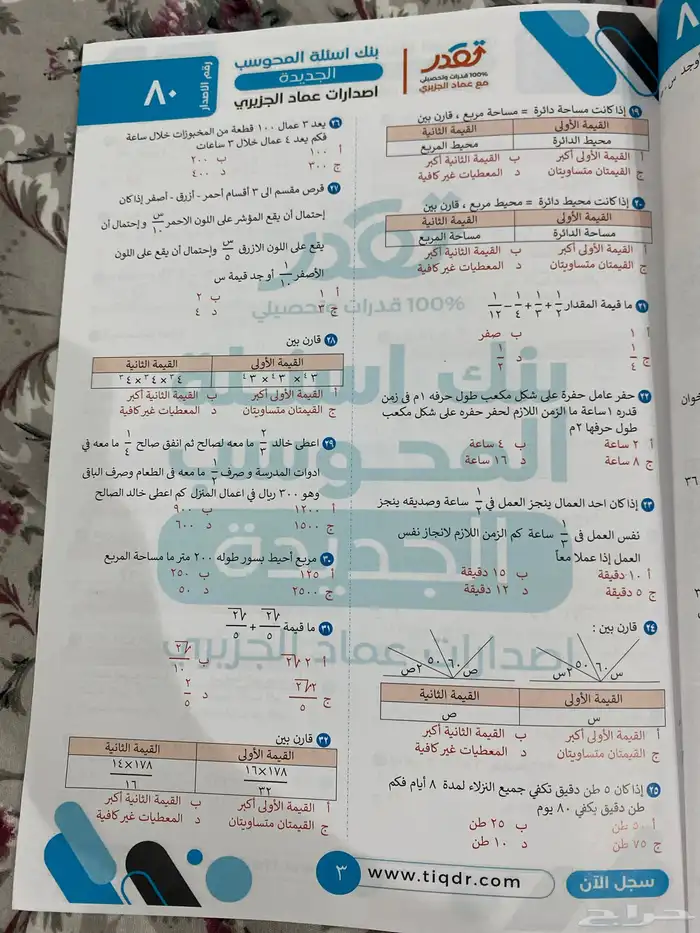 ٨٠
رقم الاصدار
بنك اسئلة المحوسب
الجديدة
اصدارات عماد الجزيري
تقدر
100% قدرات وتحصيلي
مع عماد الجزيري
١٩ إذا كانت مساحة دائرة = مساحة مربع ، قارن بين
القيمة الأولى القيمة الثانية
محيط الدائرة محيط المربع
أ القيمة الأولى أكبر ب القيمة الثانية أكبر
ج القيمتان متساويتان د المعطيات غير كافية
٢٠ إذا كانت محيط دائرة = محيط مربع ، قارن بين
القيمة الأولى القيمة الثانية
مساحة الدائرة مساحة المربع
أ القيمة الأولى أكبر ب القيمة الثانية أكبر
ج القيمتان متساويتان د المعطيات غير كافية
٢١ ما قيمة المقدار ١/٢ + ١/٣ + ١/٤ − ١/١٢
أ ١ ب صفر
ج ١/٤ د ١/٢
٢٢ حفر عامل حفرة على شكل مكعب طول حرفه ١م فى زمن
قدره ١ ساعة ما الزمن اللازم لحفر حفره على شكل مكعب
طول حرفها ٢م
أ ٢ ساعة ب ٤ ساعة
ج ٨ ساعة د ١٦ ساعة
٢٣ إذا كان احد العمال ينجز العمل في ١/٢ ساعة وصديقه ينجز
نفس العمل فى ١/٣ ساعة كم الزمن اللازم لانجاز نفس
العمل إذا عملا معاً
أ ١٠ دقيقة ب ١٥ دقيقة
ج ٥ دقيقة د ١٢ دقيقة
٢٤ قارن بين :
س ٦٠ ٥٠ س٢
ص ٦٠ ٥٠ ص٢
القيمة الأولى القيمة الثانية
س ص
أ القيمة الأولى أكبر ب القيمة الثانية أكبر
ج القيمتان متساويتان د المعطيات غير كافية
٢٥ إذا كان ٥ طن دقيق تكفي جميع النزلاء لمدة ٨ أيام فكم
طن دقيق يكفي ٨٠ يوم
أ ٥٠ طن ب ٢٥ طن
ج ٧٥ طن د ١٠ طن
٢٦ يعد ٣ عمال ١٠٠ قطعة من المخبوزات خلال ساعة
فكم يعد ٤ عمال خلال ٣ ساعات
أ ١٠٠ ب ٢٠٠
ج ٣٠٠ د ٤٠٠
٢٧ قرص مقسم الى ٣ أقسام أحمر - أزرق - أصفر إذا كان
إحتمال أن يقع المؤشر على اللون الاحمر س/١٠ و إحتمال أن
يقع على اللون الازرق س/٥ وإحتمال أن يقع على اللون
الأصفر ١/١٠ أوجد قيمة س
أ ١ ب ٢
ج ٣ د ٤
٢٨ قارن بين
القيمة الأولى القيمة الثانية
٣^٤ × ٣^٤ × ٣^٤ ٤^٣ × ٤^٣ × ٤^٣
أ القيمة الأولى أكبر ب القيمة الثانية أكبر
ج القيمتان متساويتان د المعطيات غير كافية
٢٩ اعطى خالد ٢/٣ ما معه لصالح ثم انفق صالح ١/٤ ما معه في
ادوات المدرسة و صرف ١/٢ ما معه فى الطعام وصرف الباقى
وهو ٣٠٠ ريال في اعمال المنزل كم اعطى خالد الصالح
أ ١٢٠٠ ب ٩٠٠
ج ١٥٠٠ د ٦٠٠
٣٠ مربع أحيط بسور طوله ٢٠٠ متر ما مساحة المربع
أ ١٢٥ ب ٢٥٠
ج ٢٥٠٠ د ٥٠
٣١ ما قيمة √٢/٥ + √٢/٥
أ ٢√٢ ب √٢/١٠
ج ٢√٢/٥ د ٢/٥
٣٢ قارن بين
القيمة الأولى القيمة الثانية
١٧٨×١٦/٣٢ ١٧٨×١٤/١٦
أ القيمة الأولى أكبر ب القيمة الثانية أكبر
ج القيمتان متساويتان د المعطيات غير كافية
تقدر
100% قدرات وتحصيلي
بنك اسئلة
المحوسب
الجديدة
اصدارات عماد الجزيري
٣
www.tiqdr.com
سجل الآن
حراج